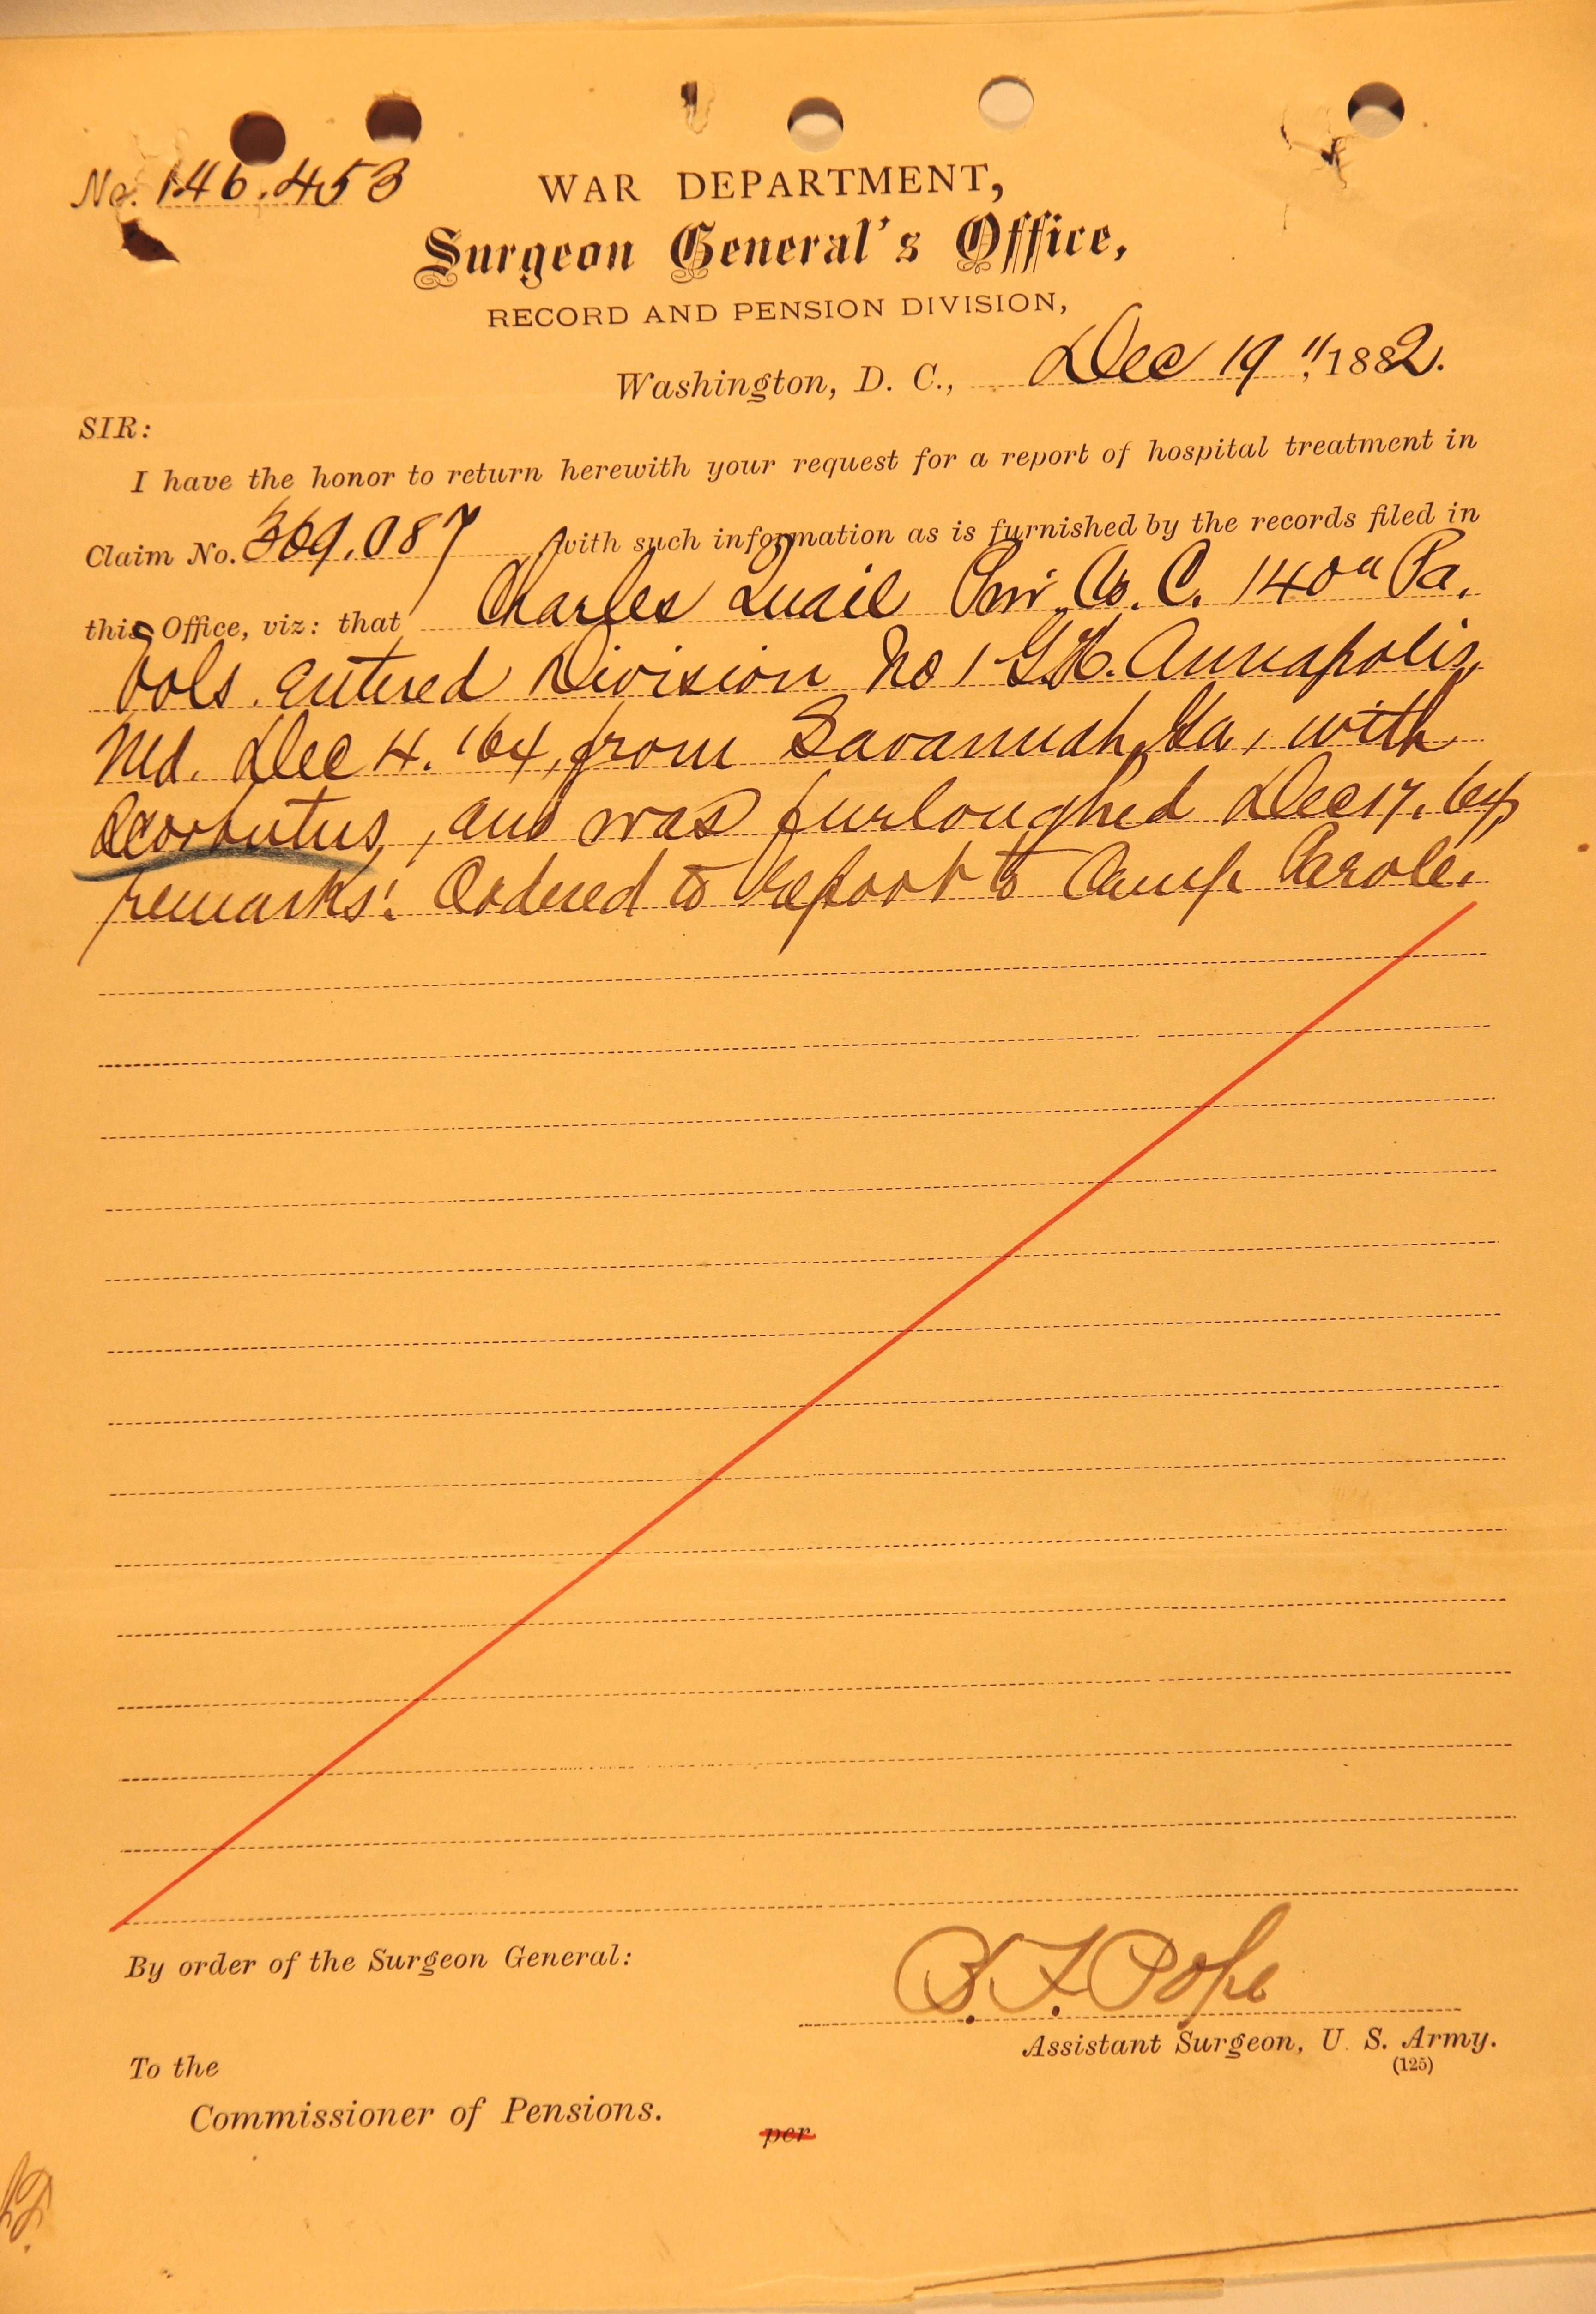 No. 146.453
WAR DEPARTMENT,
Surgeon General's Office,
RECORD AND PENSION DIVISION,
Washington, D. C., Dec 19", 1882.
SIR:
I have the honor to return herewith your request for a report of hospital treatment in
Claim No. 369.087 with such information as is furnished by the records filed in
this Office, viz: that Charles Quail Priv. Co. C. 140" Pa.
Vols. Entered Division No 1 G.H. Annapolis,
Md. Dec 4. '64, from Savannah, Ga, with
Scorbutus, and was furloughed Dec 17. 64,
remarks: Ordered to report to Camp Parole.
By order of the Surgeon General:
B. F. Pope
Assistant Surgeon, U. S. Army.
(125)
To the
Commissioner of Pensions.
per